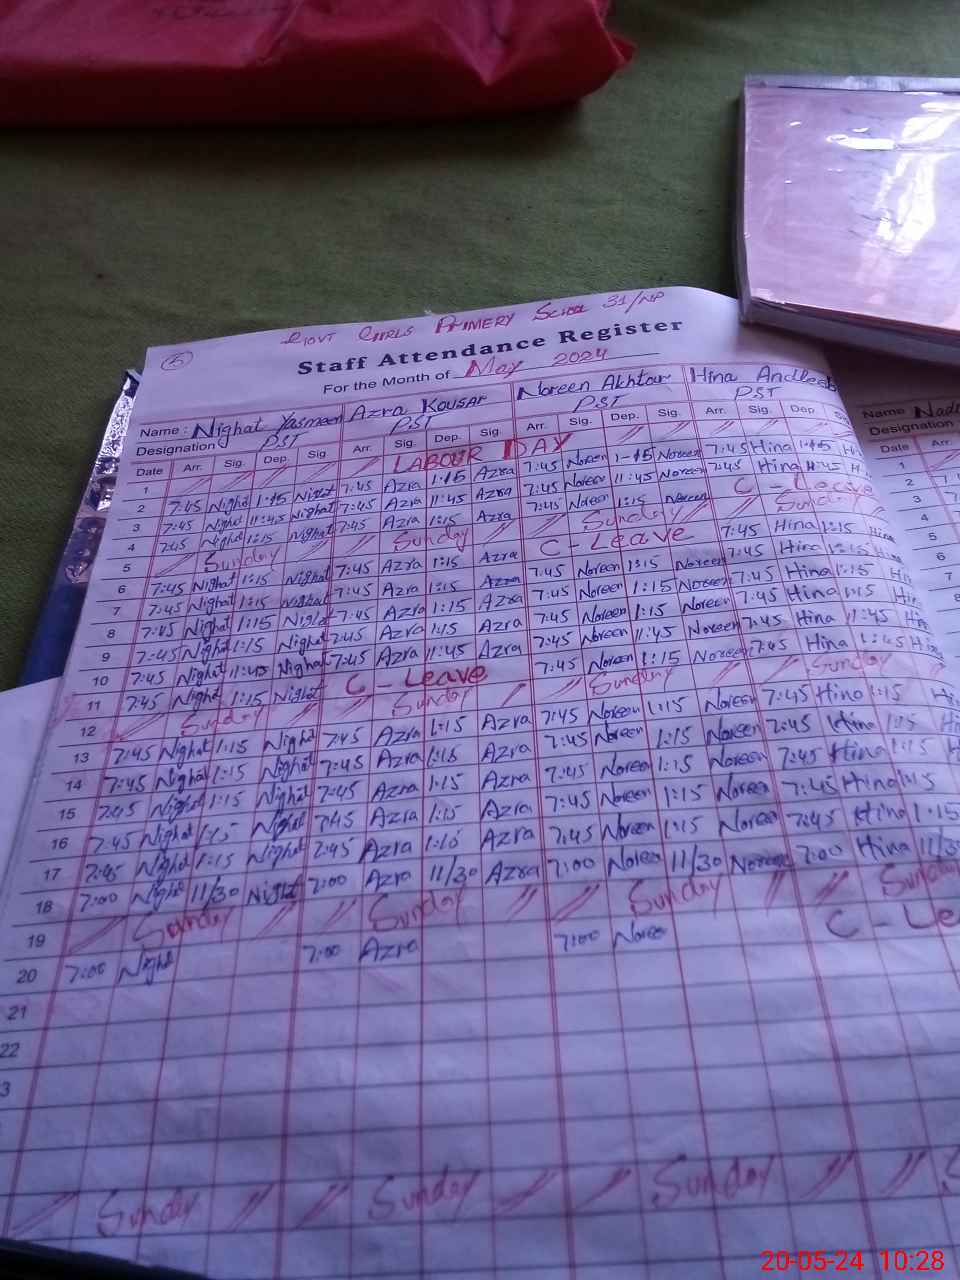 GOVT GIRLS PRIMERY School 31/NP
5 Staff Attendance Register
For the Month of May 2024
Name : Nighat Yasmeen Azra Kousar Noreen Akhtar Hina Andleeb
Designation PST PST PST PST
Date Arr. Sig. Dep. Sig Arr. Sig. Dep. Sig. Arr. Sig. Dep. Sig. Arr. Sig. Dep.
1 LABOUR DAY
2 7:45 Nighat 1:15 Nighat 7:45 Azra 1:15 Azra 7:45 Noreen 1-15 Noreen 7:45 Hina 1:15
3 7:45 Nighat 11:45 Nighat 7:45 Azra 11:45 Azra 7:45 Noreen 11:45 Noreen 7:45 Hina 11:45
4 7:45 Nighat 1:15 Nighat 7:45 Azra 1:15 Azra 7:45 Noreen 1:15 Noreen C - Leave
5 Sunday Sunday Sunday Sunday
6 7:45 Nighat 1:15 Nighat 7:45 Azra 1:15 Azra C - Leave 7:45 Hina 1:15
7 7:45 Nighat 1:15 Nighat 7:45 Azra 1:15 Azra 7:45 Noreen 1:15 Noreen 7:45 Hina 1:15
8 7:45 Nighat 1:15 Nighat 7:45 Azra 1:15 Azra 7:45 Noreen 1:15 Noreen 7:45 Hina 1:15
9 7:45 Nighat 1:15 Nighat 7:45 Azra 1:15 Azra 7:45 Noreen 1:15 Noreen 7:45 Hina 1:15
10 7:45 Nighat 11:45 Nighat 7:45 Azra 11:45 Azra 7:45 Noreen 11:45 Noreen 7:45 Hina 11:45
11 7:45 Nighat 1:15 Nighat C - Leave 7:45 Noreen 1:15 Noreen 7:45 Hina
12 Sunday Sunday Sunday Sunday
13 7:45 Nighat 1:15 Nighat 7:45 Azra 1:15 Azra 7:45 Noreen 1:15 Noreen 7:45 Hina 1:15
14 7:45 Nighat 1:15 Nighat 7:45 Azra 1:15 Azra 7:45 Noreen 1:15 Noreen 7:45 Hina 1:15
15 7:45 Nighat 1:15 Nighat 7:45 Azra 1:15 Azra 7:45 Noreen 1:15 Noreen 7:45 Hina 1:15
16 7:45 Nighat 1:15 Nighat 7:45 Azra 1:15 Azra 7:45 Noreen 1:15 Noreen 7:45 Hina 1:15
17 7:45 Nighat 1:15 Nighat 7:45 Azra 1:15 Azra 7:45 Noreen 1:15 Noreen 7:45 Hina 1:15
18 7:00 Nighat 11/30 Nighat 7:00 Azra 11/30 Azra 7:00 Noreen 11/30 Noreen 7:00 Hina
19 Sunday Sunday Sunday Sunday
20 7:00 Nighat 7:00 Azra 7:00 Noreen C - Le
21
22
3
Sunday Sunday Sunday S
Name
Designation
Date Arr.
1
2
3
4
5
6
7
8
20-05-24 10:28